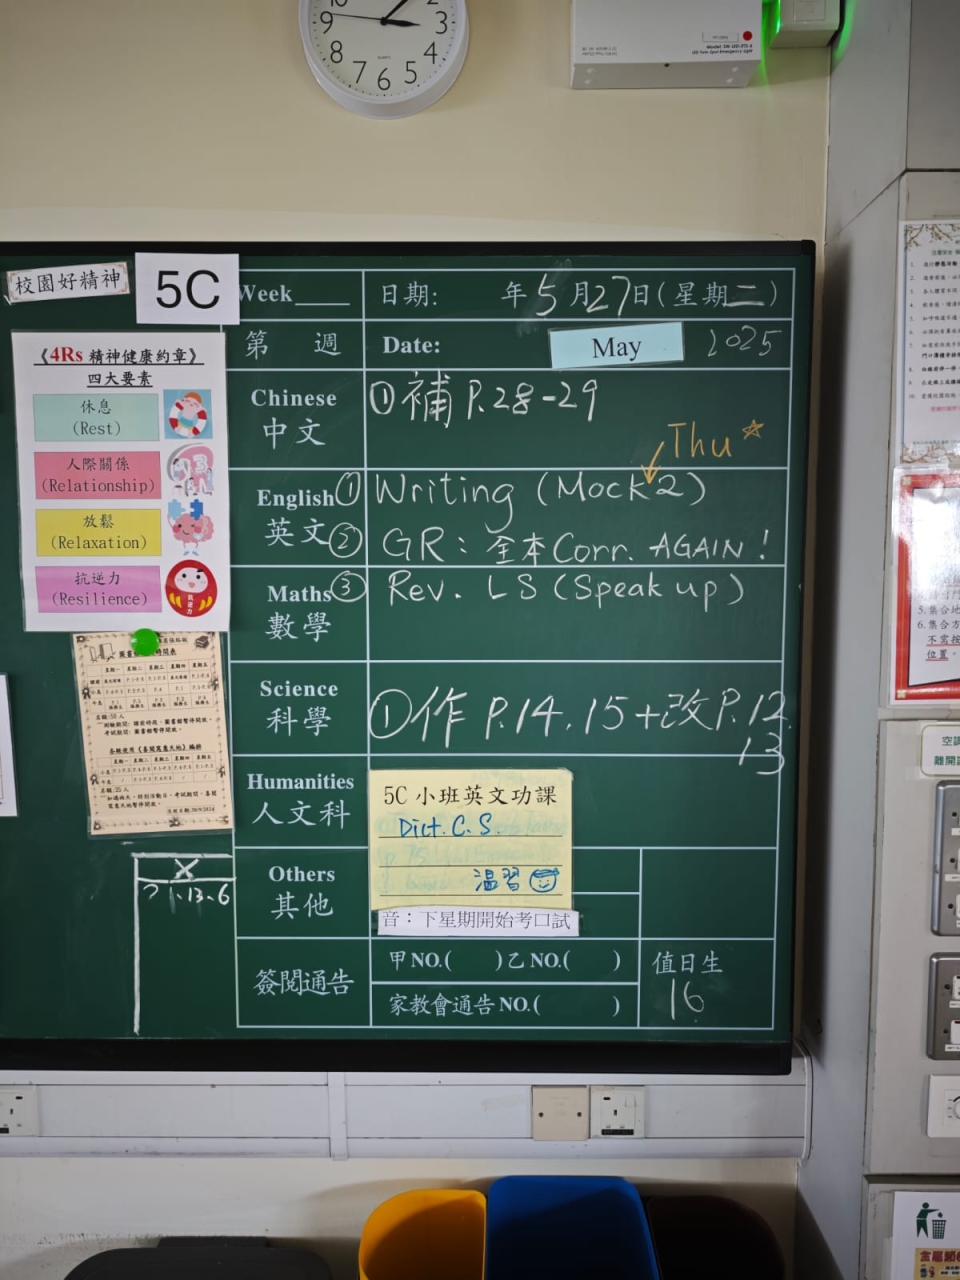 2
3
4
5
6
7
8
9
10
QUARTZ
校園好精神
5C
《4Rs 精神健康約章》
四大要素
休息
(Rest)
人際關係
(Relationship)
放鬆
(Relaxation)
抗逆力
(Resilience)
抗逆力
Week
日期: 年5月27日(星期二)
第 週
Date: May 2025
Chinese
中文
①補 P.28-29
Thu☆
English
英文
① Writing (Mock 2)
② GR: 全本Corr. AGAIN!
Maths
數學
③ Rev. LS (Speak up)
Science
科學
①作 P.14, 15+改P.12,
13
Humanities
人文科
5C 小班英文功課
Dict. C. S.
温習
Others
其他
音：下星期開始考口試
簽閱通告
甲NO.( )乙NO.( )
家教會通告NO.( )
值日生
16
X
7 1.13.6
各級使用《喜閱寫意天地》編排
空調
離開課
5.集合地
6.集合方
不需按
位置。